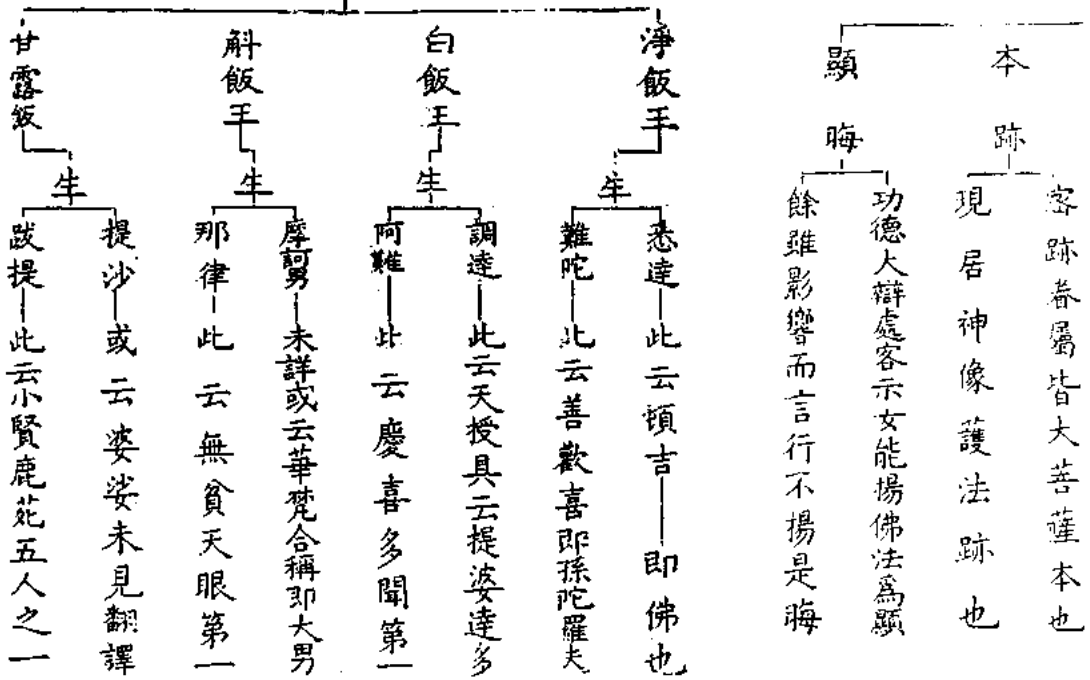 本跡
密跡眷屬皆大菩薩本也
現居神像護法跡也
顯晦
功德大辯處容示女能揚佛法爲顯
餘雖影響而言行不揚是晦
淨飯王
生
悉達
此云頓吉
即佛也
難陀
此云善歡喜即孫陀羅夫
白飯王
生
調達
此云天授具云提婆達多
阿難
此云慶喜多聞第一
斛飯王
生
摩訶男
未詳或云華梵合稱即大男
那律
此云無貧天眼第一
甘露飯
生
提沙
或云婆娑未見翻譯
跋提
此云小賢鹿苑五人之一